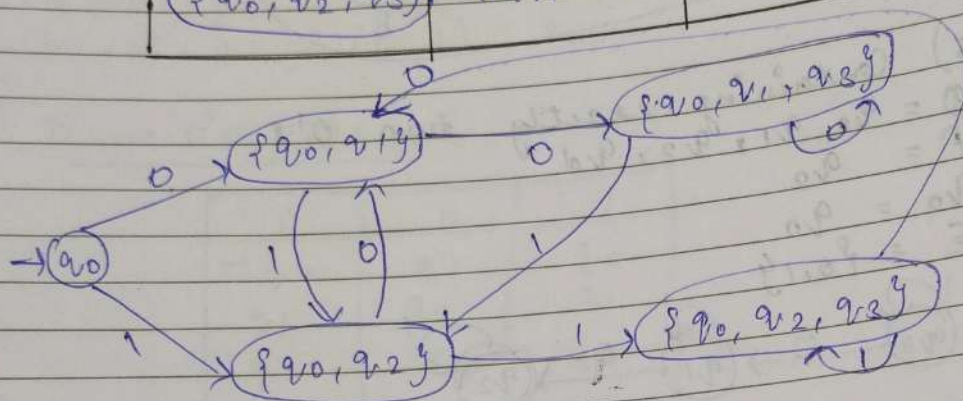 {q0, q2, q3}
0
{q0, q1, q3}
{q0, q1}
0
0
0
1
0
1
→q0
1
{q0, q2}
1
{q0, q2, q3}
1